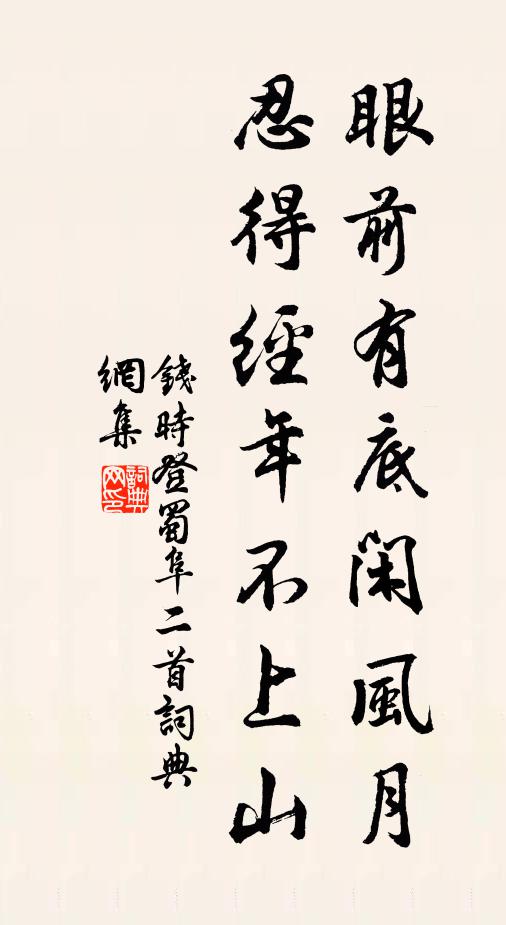 眼前有底閑風月
忍得經年不上山
錢時登蜀阜二首詞典
網集
詞典
網印